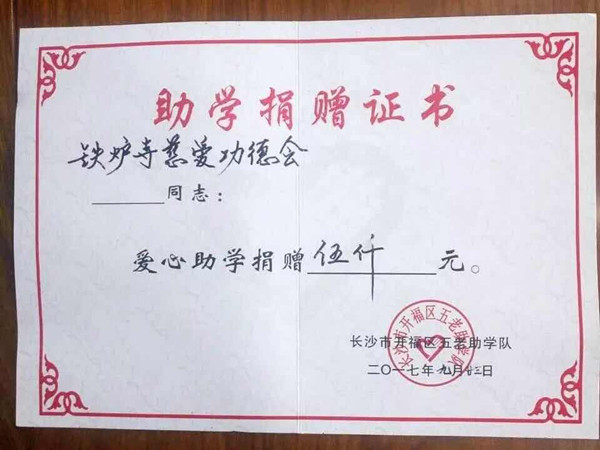 助学捐赠证书
铁炉寺慈爱功德会
同志：
爱心助学捐赠伍仟元。
长沙市开福区五老助学队
长沙市开福区五老助学队
二〇一七年九月廿二日